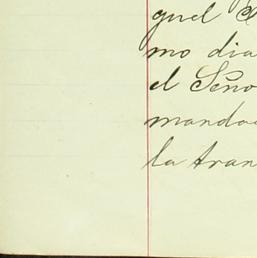 guel
mo dia
el Seño
manda
la tran